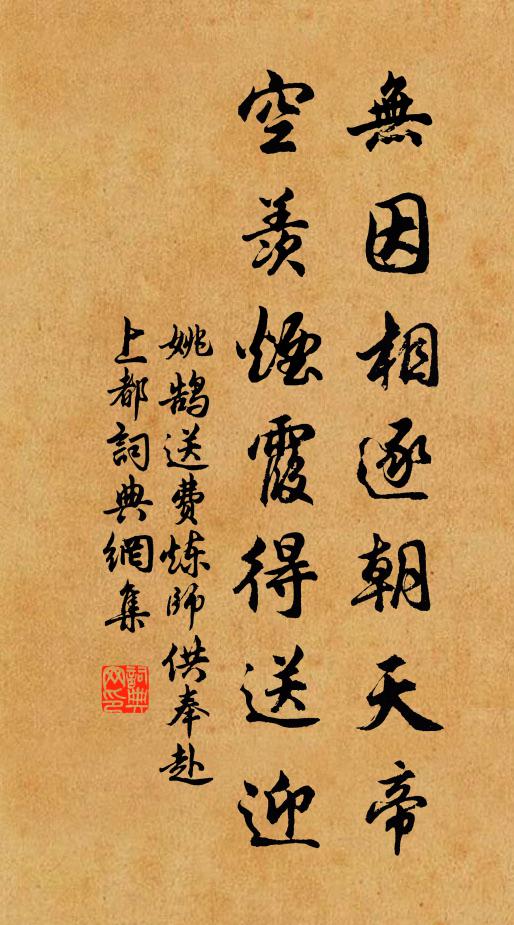 無因相逐朝天帝
空羨煙霞得送迎
姚鵠送費煉師供奉赴
上都詞典網集
詞典
网印